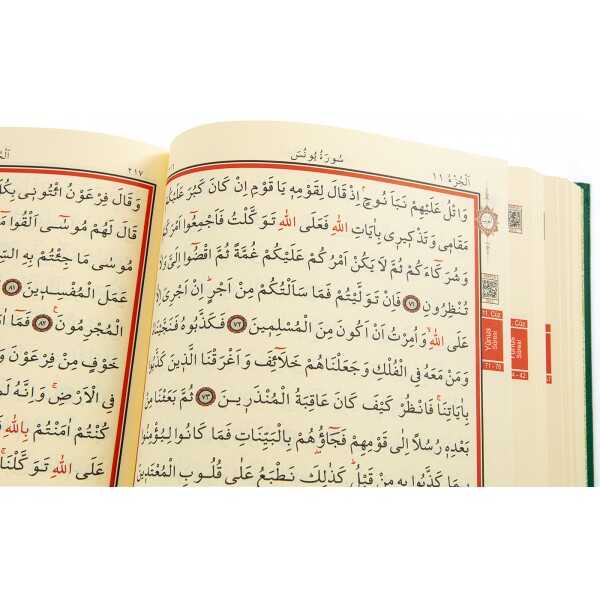 سُورَةُ يُونُسَ
اَلْجُزْءُ ١١
وَاتْلُ عَلَيْهِمْ نَبَاَ نُوحٍۢ اِذْ قَالَ لِقَوْمِهٖ يَا قَوْمِ اِنْ كَانَ كَبُرَ عَلَيْكُمْ
مَقَامٖي وَتَذْكٖيرٖي بِاٰيَاتِ اللّٰهِ فَعَلَى اللّٰهِ تَوَكَّلْتُ فَاَجْمِعُٓوا اَمْرَكُمْ
وَشُرَكَٓاءَكُمْ ثُمَّ لَا يَكُنْ اَمْرُكُمْ عَلَيْكُمْ غُمَّةً ثُمَّ اقْضُٓوا اِلَيَّ وَلَا
تُنْظِرُونِ ﴿٧١﴾ فَاِنْ تَوَلَّيْتُمْ فَمَا سَاَلْتُكُمْ مِنْ اَجْرٍۜ اِنْ اَجْرِيَ اِلَّا
عَلَى اللّٰهِۙ وَاُمِرْتُ اَنْ اَكُونَ مِنَ الْمُسْلِمٖينَ ﴿٧٢﴾ فَكَذَّبُوهُ فَنَجَّيْنَاهُ
وَمَنْ مَعَهُ فِي الْفُلْكِ وَجَعَلْنَاهُمْ خَلَٓائِفَ وَاَغْرَقْنَا الَّذٖينَ كَذَّبُوا
بِاٰيَاتِنَاۚ فَانْظُرْ كَيْفَ كَانَ عَاقِبَةُ الْمُنْذَرٖينَ ﴿٧٣﴾ ثُمَّ بَعَثْنَا مِنْ
بَعْدِهٖ رُسُلًا اِلٰى قَوْمِهِمْ فَجَٓاؤُ۫هُمْ بِالْبَيِّنَاتِ فَمَا كَانُوا لِيُؤْمِنُوا
بِمَا كَذَّبُوا بِهٖ مِنْ قَبْلُۜ كَذٰلِكَ نَطْبَعُ عَلٰى قُلُوبِ الْمُعْتَدٖينَ
11. Cüz
Yûnus
Sûresi
71 - 78
٢١٧
وَقَالَ فِرْعَوْنُ ائْتُونٖي بِكُلِّ
قَالَ لَهُمْ مُوسٰٓى اَلْقُوا مَٓا
مُوسٰى مَا جِئْتُمْ بِهِ
عَمَلَ الْمُفْسِدٖينَ ﴿٨١﴾
الْمُجْرِمُونَ ﴿٨٢﴾ فَمَٓا
خَوْفٍ مِنْ فِرْعَوْنَ
فِي الْاَرْضِۚ وَاِنَّهُ
كُنْتُمْ اٰمَنْتُمْ بِاللّٰهِ
عَلَى اللّٰهِ تَوَكَّلْنَا